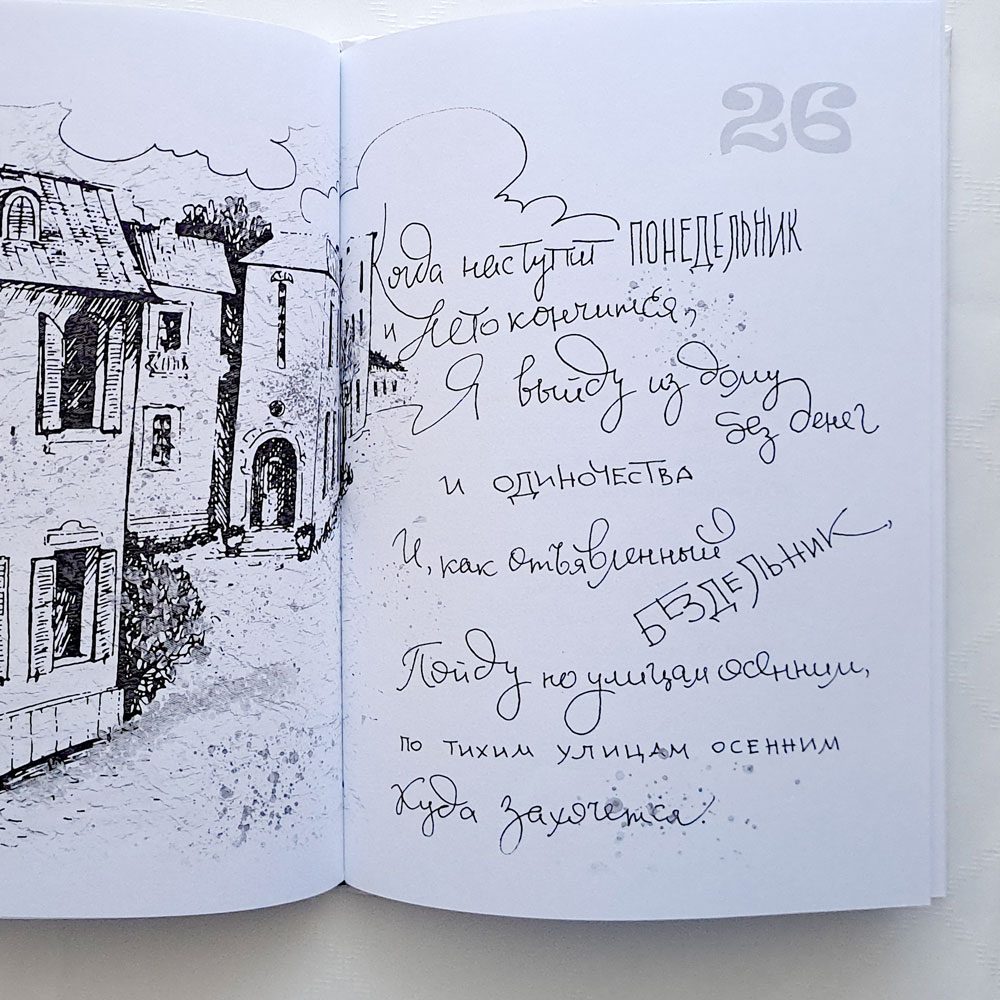 26
Когда наступит ПОНЕДЕЛЬНИК
и лето кончится,
Я выйду из дому
без денег
и одиночества
И, как отъявленный
БЕЗДЕЛЬНИК,
Пойду по улицам осенним,
по тихим улицам осенним
Куда захочется.